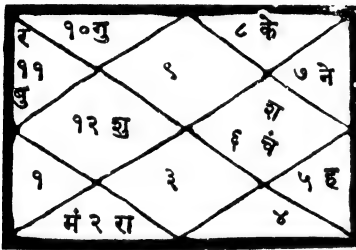 १० गु
८ के
र
११
बु
९
७ ने
१२ शु
श
६ चं
१
३
५ ह
मं २ रा
४